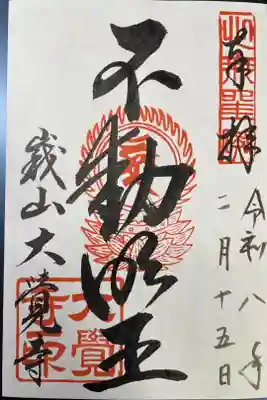 奉拝
令和八年
二月十五日
不動明王
嵯山大覺寺
大覺
寺印